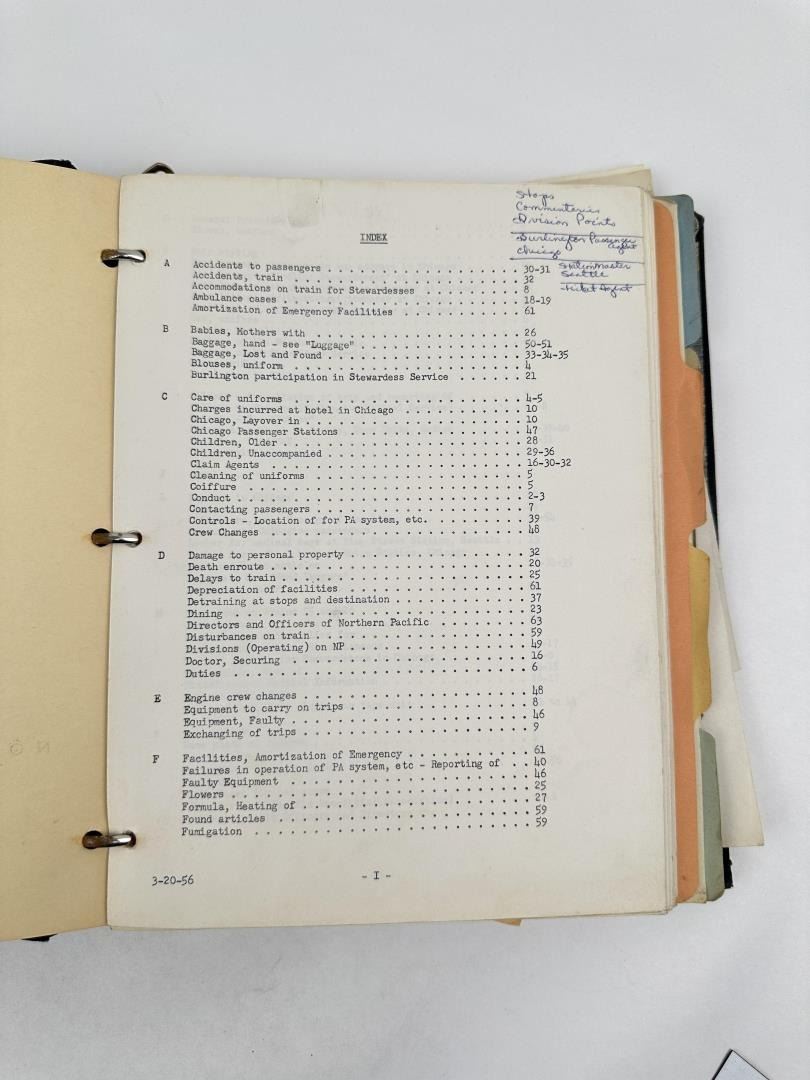 Stops
Commentaries
Division Points
Burlington Passenger
agent
Chicago
Station Master
Seattle
Ticket Agent
INDEX
A Accidents to passengers . . . . . . . . . . . . . . . . . . . 30-31
Accidents, train . . . . . . . . . . . . . . . . . . . . . . 32
Accommodations on train for Stewardesses . . . . . . . . . 8
Ambulance cases . . . . . . . . . . . . . . . . . . . . . . . 18-19
Amortization of Emergency Facilities . . . . . . . . . . . 61
B Babies, Mothers with . . . . . . . . . . . . . . . . . . . . 26
Baggage, hand - see "Luggage" . . . . . . . . . . . . . . . 50-51
Baggage, Lost and Found . . . . . . . . . . . . . . . . . . 33-34-35
Blouses, uniform . . . . . . . . . . . . . . . . . . . . . . 4
Burlington participation in Stewardess Service . . . . . . 21
C Care of uniforms . . . . . . . . . . . . . . . . . . . . . . 4-5
Charges incurred at hotel in Chicago . . . . . . . . . . . 10
Chicago, Layover in . . . . . . . . . . . . . . . . . . . . 10
Chicago Passenger Stations . . . . . . . . . . . . . . . . 47
Children, Older . . . . . . . . . . . . . . . . . . . . . . 28
Children, Unaccompanied . . . . . . . . . . . . . . . . . . 29-36
Claim Agents . . . . . . . . . . . . . . . . . . . . . . . 16-30-32
Cleaning of uniforms . . . . . . . . . . . . . . . . . . . 5
Coiffure . . . . . . . . . . . . . . . . . . . . . . . . . 5
Conduct . . . . . . . . . . . . . . . . . . . . . . . . . . 2-3
Contacting passengers . . . . . . . . . . . . . . . . . . . 7
Controls - Location of for PA system, etc. . . . . . . . . 39
Crew Changes . . . . . . . . . . . . . . . . . . . . . . . 48
D Damage to personal property . . . . . . . . . . . . . . . . 32
Death enroute . . . . . . . . . . . . . . . . . . . . . . . 20
Delays to train . . . . . . . . . . . . . . . . . . . . . . 25
Depreciation of facilities . . . . . . . . . . . . . . . . 61
Detraining at stops and destination . . . . . . . . . . . . 37
Dining . . . . . . . . . . . . . . . . . . . . . . . . . . 23
Directors and Officers of Northern Pacific . . . . . . . . 63
Disturbances on train . . . . . . . . . . . . . . . . . . . 59
Divisions (Operating) on NP . . . . . . . . . . . . . . . . 49
Doctor, Securing . . . . . . . . . . . . . . . . . . . . . 16
Duties . . . . . . . . . . . . . . . . . . . . . . . . . . 6
E Engine crew changes . . . . . . . . . . . . . . . . . . . . 48
Equipment to carry on trips . . . . . . . . . . . . . . . . 8
Equipment, Faulty . . . . . . . . . . . . . . . . . . . . . 46
Exchanging of trips . . . . . . . . . . . . . . . . . . . . 9
F Facilities, Amortization of Emergency . . . . . . . . . . . 61
Failures in operation of PA system, etc - Reporting of . . 40
Faulty Equipment . . . . . . . . . . . . . . . . . . . . . 46
Flowers . . . . . . . . . . . . . . . . . . . . . . . . . . 25
Formula, Heating of . . . . . . . . . . . . . . . . . . . . 27
Found articles . . . . . . . . . . . . . . . . . . . . . . 59
Fumigation . . . . . . . . . . . . . . . . . . . . . . . . 59
3-20-56
- I -